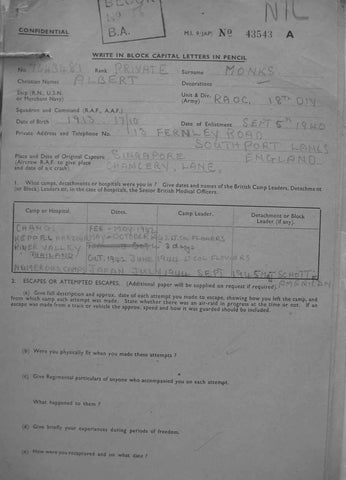 NIL
BLOCK
No
B.A.
CONFIDENTIAL
M.I. 9/JAP/ No 43543 A
WRITE IN BLOCK CAPITAL LETTERS IN PENCIL
No. Rank PRIVATE Surname MONKS
Christian Names ALBERT Decorations
Ship (R.N., U.S.N. or Merchant Navy) Unit & Div. (Army) RAOC. 18TH DIV
Squadron and Command (R.A.F., A.A.F.)
Date of Birth 1913 Date of Enlistment SEPT 1940
Private Address and Telephone No. 13 FERNLEY ROAD
SOUTHPORT LANCS
ENGLAND
Place and Date of Original Capture SINGAPORE
(Aircrew R.A.F. to give place CHANCERY LANE,
and date of a/c crash)
1. What camps, detachments or hospitals were you in ? Give dates and names of the British Camp Leaders, Detachment
(or Block) Leaders or, in the case of hospitals, the Senior British Medical Officers.
Camp or Hospital. Dates. Camp Leader. Detachment or Block Leader. (if any).
CHANGI FEB - MAY 1942
KEPPEL HARBOUR MAY - OCTOBER 42 LT COL FLOWERS
RIVER VALLEY 3 days
THAILAND Oct. 1942 JUNE 1944 LT COL FLOWERS
NUMEROUS CAMPS JAPAN JULY 1944 SEPT 1945
AMERICAN
2. ESCAPES OR ATTEMPTED ESCAPES. (Additional paper will be supplied on request if required).
(a) Give full description and approx. date of each attempt you made to escape, showing how you left the camp, and
from which camp each attempt was made. State whether there was an air-raid in progress at the time or not. If an
escape was made from a train or vehicle the approx. speed and how it was guarded should be included.
(b) Were you physically fit when you made these attempts ?
(c) Give Regimental particulars of anyone who accompanied you on each attempt.
What happened to them ?
(d) Give briefly your experiences during periods of freedom.
(e) How were you recaptured and on what date ?